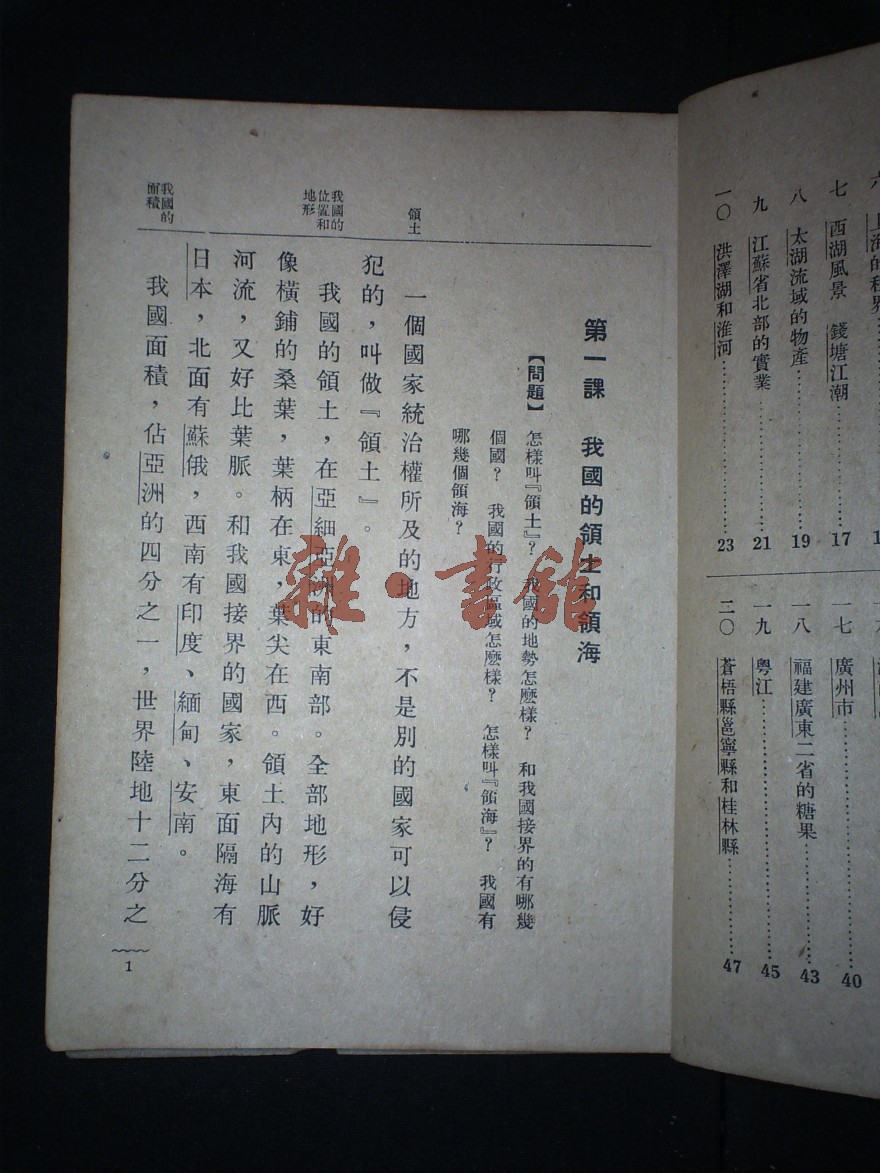 七 西湖風景 錢塘江潮……17
八 太湖流域的物產……19
九 江蘇省北部的實業……21
一〇 洪澤湖和淮河……23
一七 廣州市……40
一八 福建廣東二省的糖果……43
一九 粵江……45
二〇 蒼梧縣邕寧縣和桂林縣……47
第一課 我國的領土和領海
【問題】 怎樣叫『領土』？ 我國的地勢怎麼樣？ 和我國接界的有哪幾
個國？ 我國的行政區域怎麼樣？ 怎樣叫『領海』？ 我國有
哪幾個領海？
領土
一個國家統治權所及的地方，不是別的國家可以侵
犯的，叫做『領土』。
我國的
位置和
地形
我國的領土，在亞細亞洲的東南部。全部地形，好
像橫鋪的桑葉，葉柄在東，葉尖在西。領土內的山脈
河流，又好比葉脈。和我國接界的國家，東面隔海有
日本，北面有蘇俄，西南有印度、緬甸、安南。
我國的
面積
我國面積，佔亞洲的四分之一，世界陸地十二分之
1
雜·書館